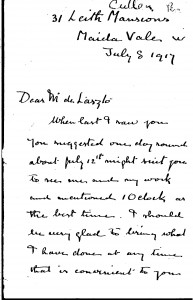 Cullen
31 Leith Mansions
Maida Vale W
July 8 1917
Dear Mr de Laszlo
When last I saw you
you suggested one day round
about July 12th might suit you
to see me and my work
and mentioned 10 o'clock as
the best time. I should
be very glad to bring what
I have done at any time
that is convenient to you